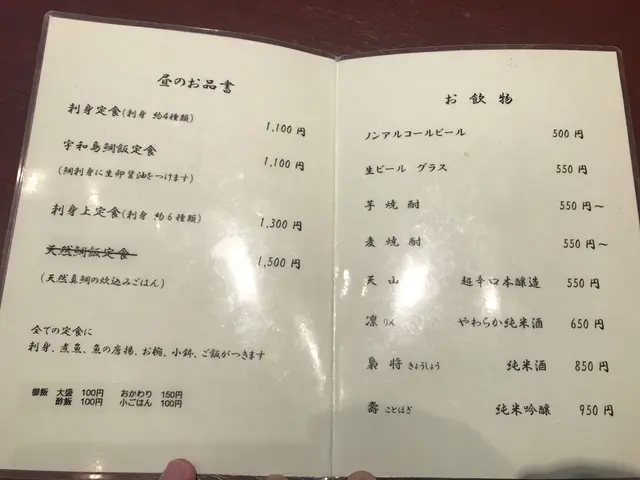 昼のお品書
刺身定食(刺身 約4種類)
1,100 円
宇和島鯛飯定食
1,100 円
(鯛刺身に生卵醤油をつけます)
刺身上定食(刺身 約6種類)
1,300 円
天然鯛飯定食
1,500 円
(天然真鯛の炊込みごはん)
全ての定食に
刺身、煮魚、魚の唐揚、お椀、小鉢、ご飯がつきます
御飯 大盛 100円 おかわり 150円
酢飯 100円 小ごはん 100円
お飲物
ノンアルコールビール 500 円
生ビール グラス 550 円
芋焼酎 550 円～
麦焼酎 550 円～
天山 超辛口本醸造 550 円
凛りん やわらか純米酒 650 円
梟将きょうしょう 純米酒 850 円
壽ことほぎ 純米吟醸 950 円